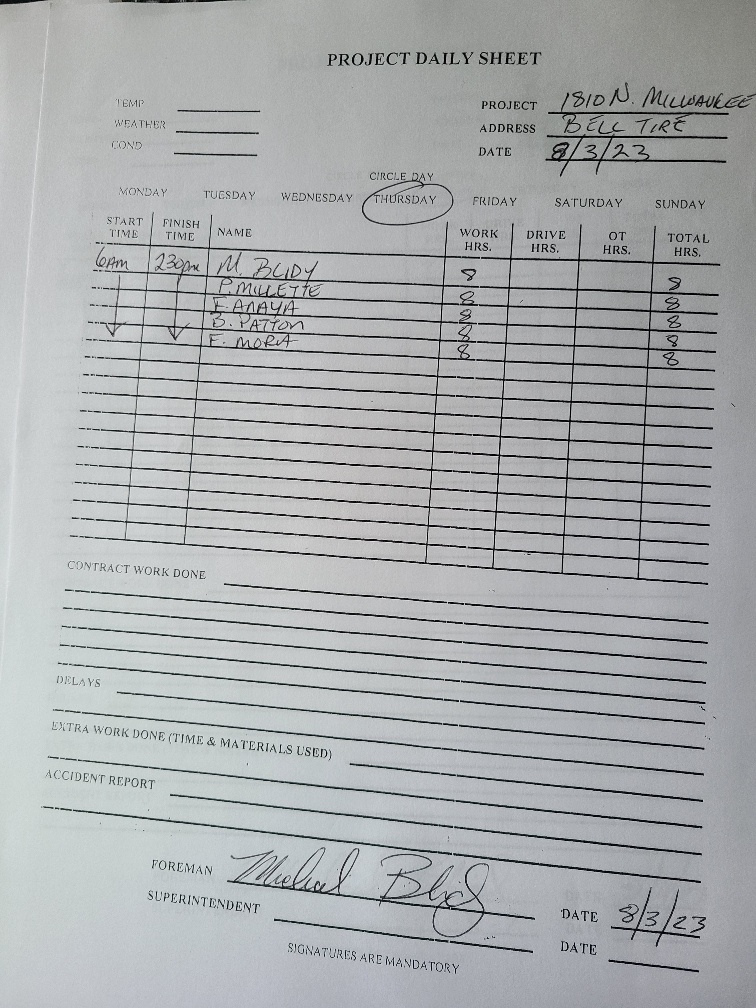 PROJECT DAILY SHEET
TEMP
PROJECT 1810 N. MILWAUKEE
WEATHER
ADDRESS BELL TIRE
COND
DATE 8/3/23
CIRCLE DAY
MONDAY TUESDAY WEDNESDAY THURSDAY FRIDAY SATURDAY SUNDAY
START TIME FINISH TIME NAME WORK HRS. DRIVE HRS. OT HRS. TOTAL HRS.
6AM 230pm M. BLIDY 8 8
P. MILLETTE 8 8
F. ANAYA 8 8
B. PATTON 8 8
F. MORA 8 8
CONTRACT WORK DONE
DELAYS
EXTRA WORK DONE (TIME & MATERIALS USED)
ACCIDENT REPORT
FOREMAN Michael Blidy DATE 8/3/23
SUPERINTENDENT DATE
SIGNATURES ARE MANDATORY